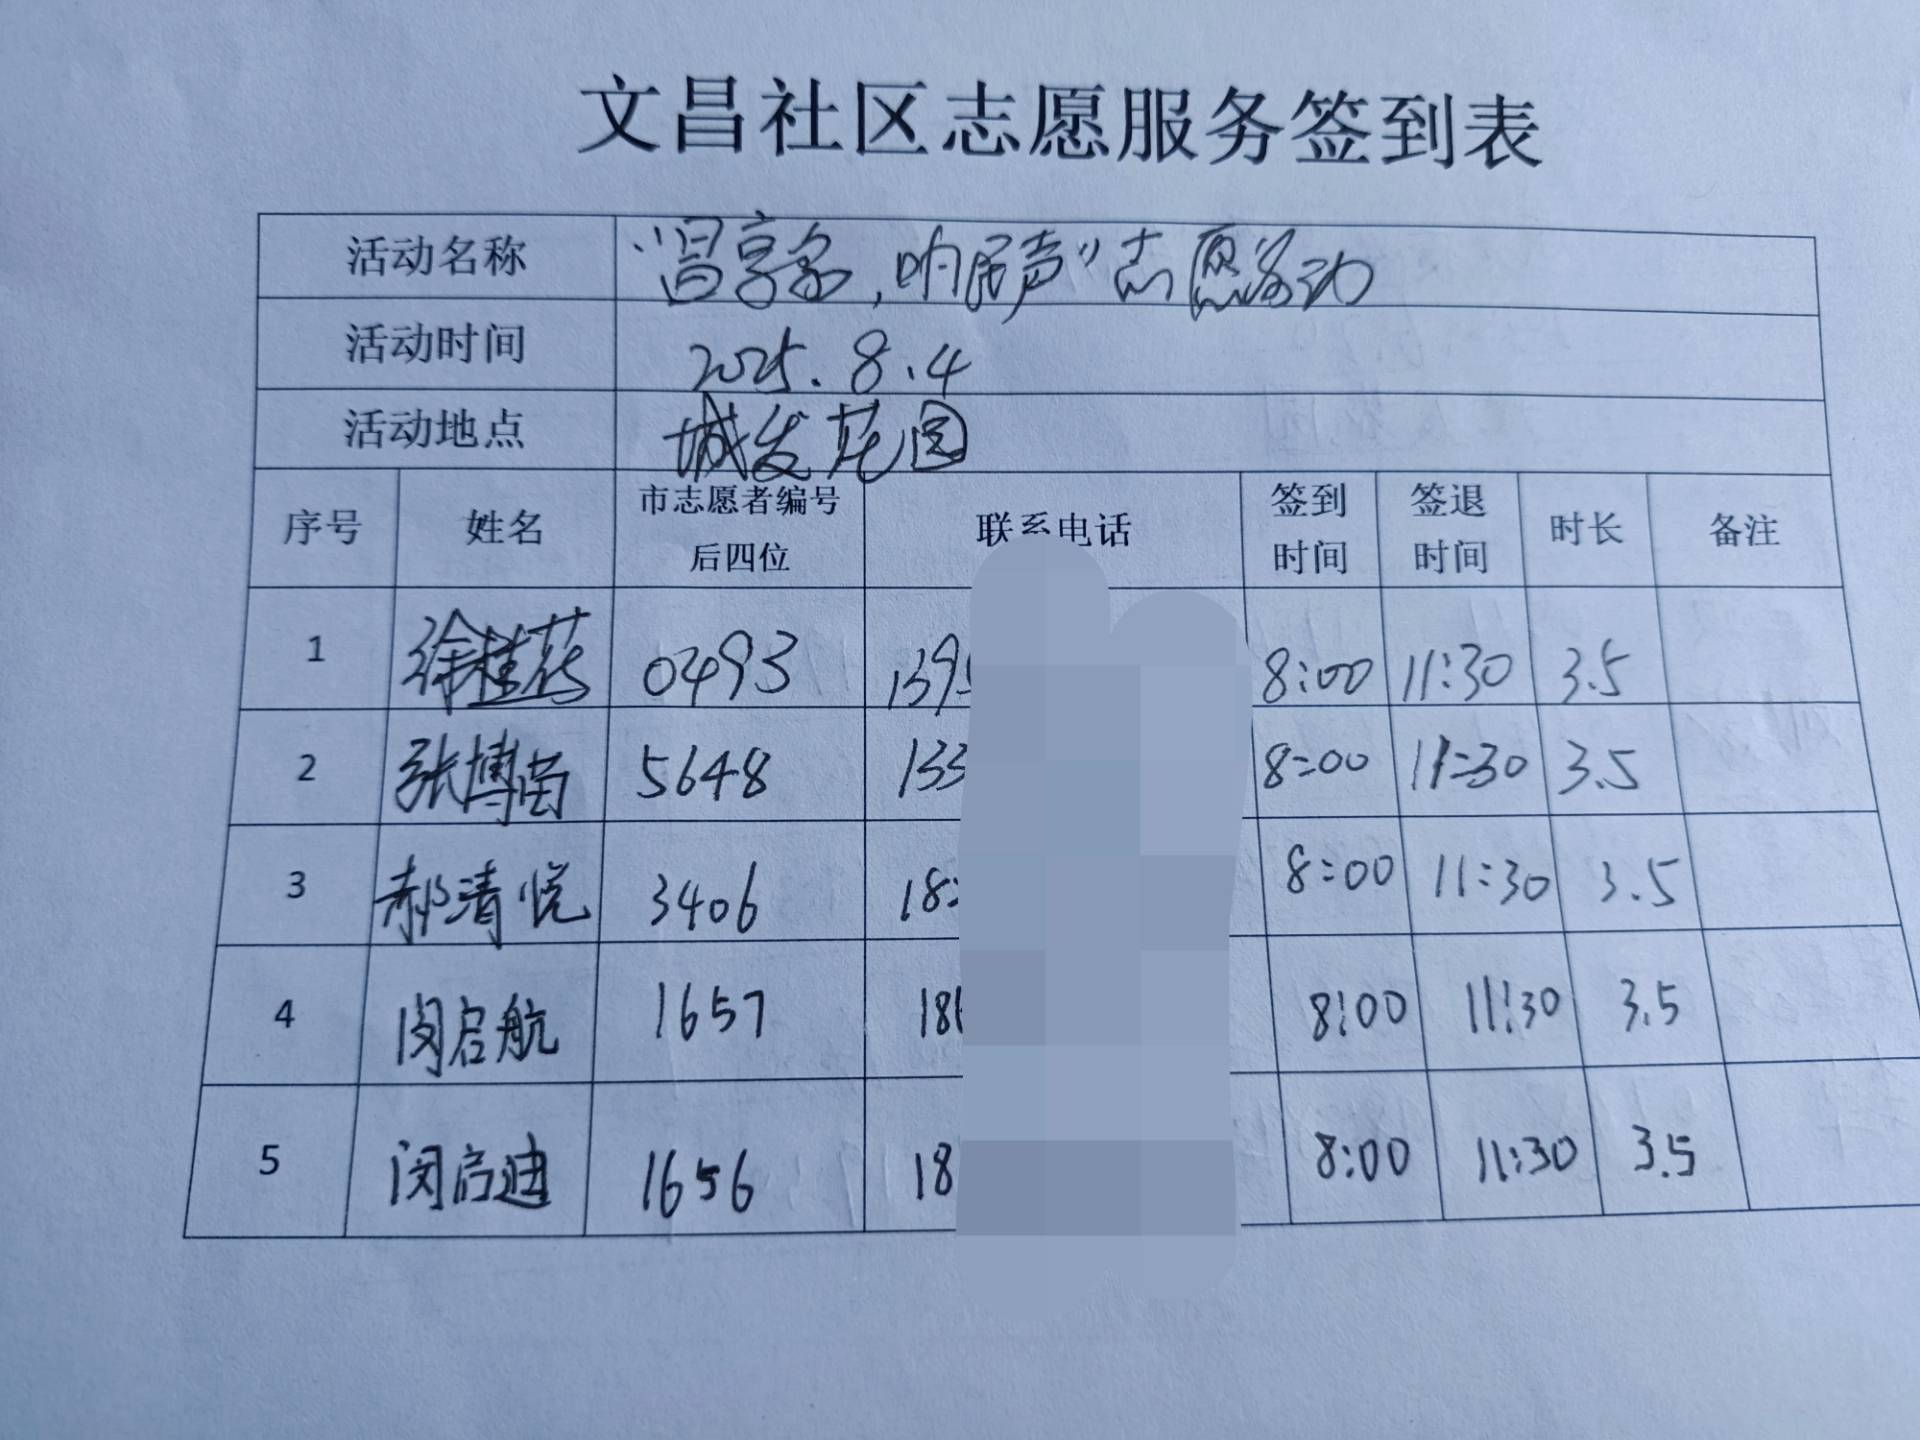 文昌社区志愿服务签到表
活动名称 “昌享家,响民声”志愿活动
活动时间 2025.8.4
活动地点 城发花园
序号 姓名 市志愿者编号后四位 联系电话 签到时间 签退时间 时长 备注
1 徐桂花 0493 139 8:00 11:30 3.5
2 张博苗 5648 133 8:00 11:30 3.5
3 郝清悦 3406 18 8:00 11:30 3.5
4 闵启航 1657 18 8:00 11:30 3.5
5 闵启迪 1656 18 8:00 11:30 3.5